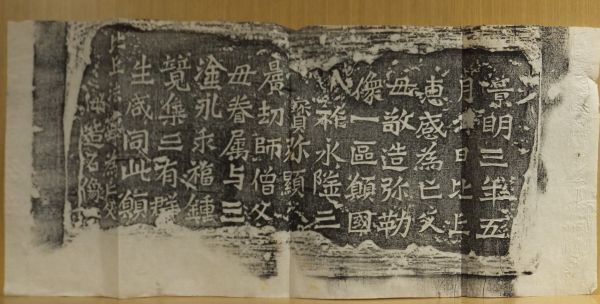 景明三年五
月卅日比丘
惠感為亡父
母敬造弥勒
像一區願國
祚永隆三
寶弥顯
曠劫師僧父
母眷屬与三
塗永乖福鍾
竟集三有群
生咸同此願
比丘法為亡父
造石像